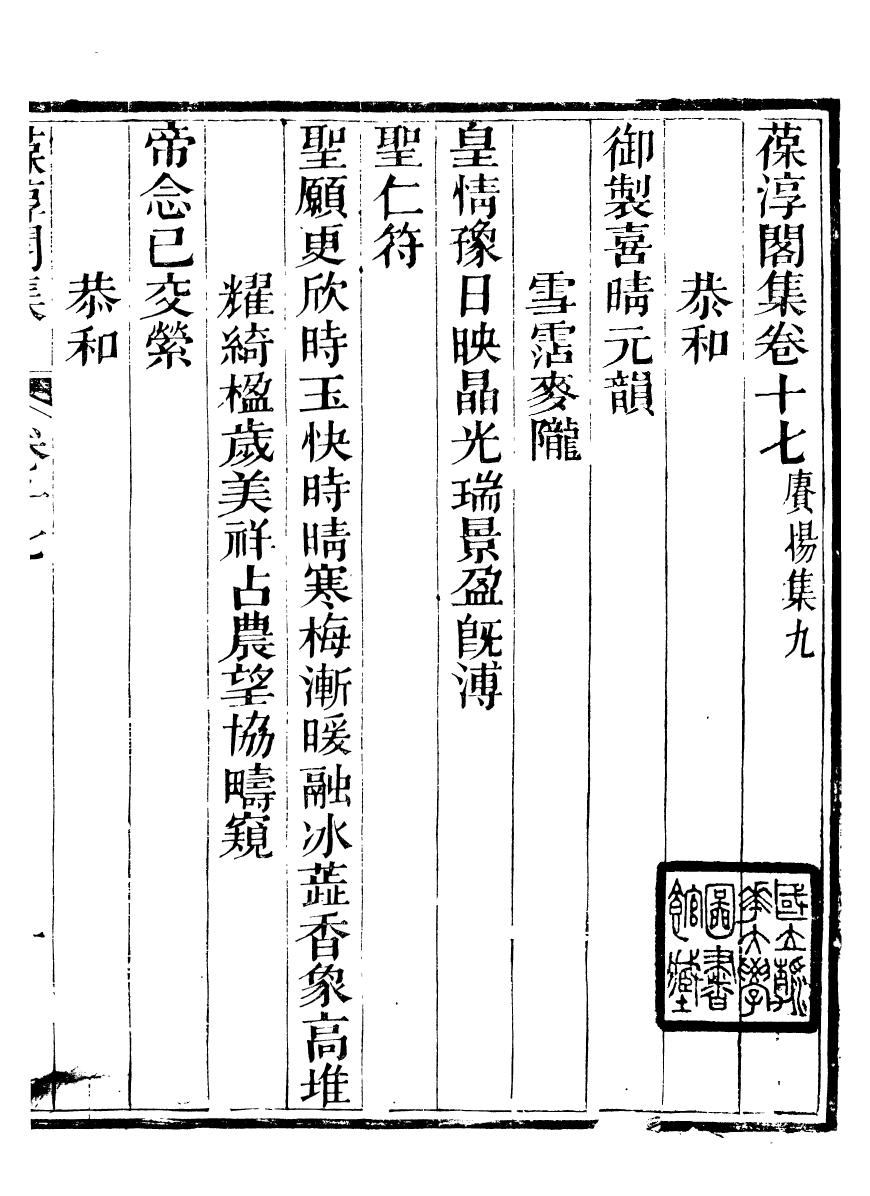 葆淳閣集卷十七 賡揚集九
恭和
御製喜晴元韻
雪霑麥隴
皇情豫日映晶光瑞景盈旣溥
聖仁符
聖願更欣時玉快時晴寒梅漸暖融冰蕋香象高堆
耀綺楹歲美祥占農望協疇窺
帝念已交縈
恭和
葆淳閣集 卷十七 一
國立清華大學圖書館藏